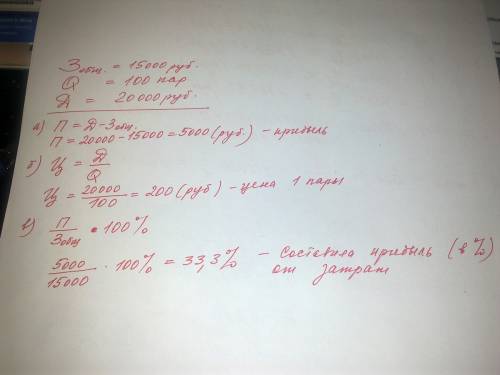 Зобщ. = 15000 руб.
Q = 100 пар
Д = 20000 руб.
а) П = Д - Зобщ.
П = 20000 - 15000 = 5000 (руб.) - прибыль
б) Ц = Д/Q
Ц = 20000/100 = 200 (руб) - цена 1 пары
в) П/Зобщ • 100%
5000/15000 · 100% = 33,3% - составила прибыль (в %)
от затрат